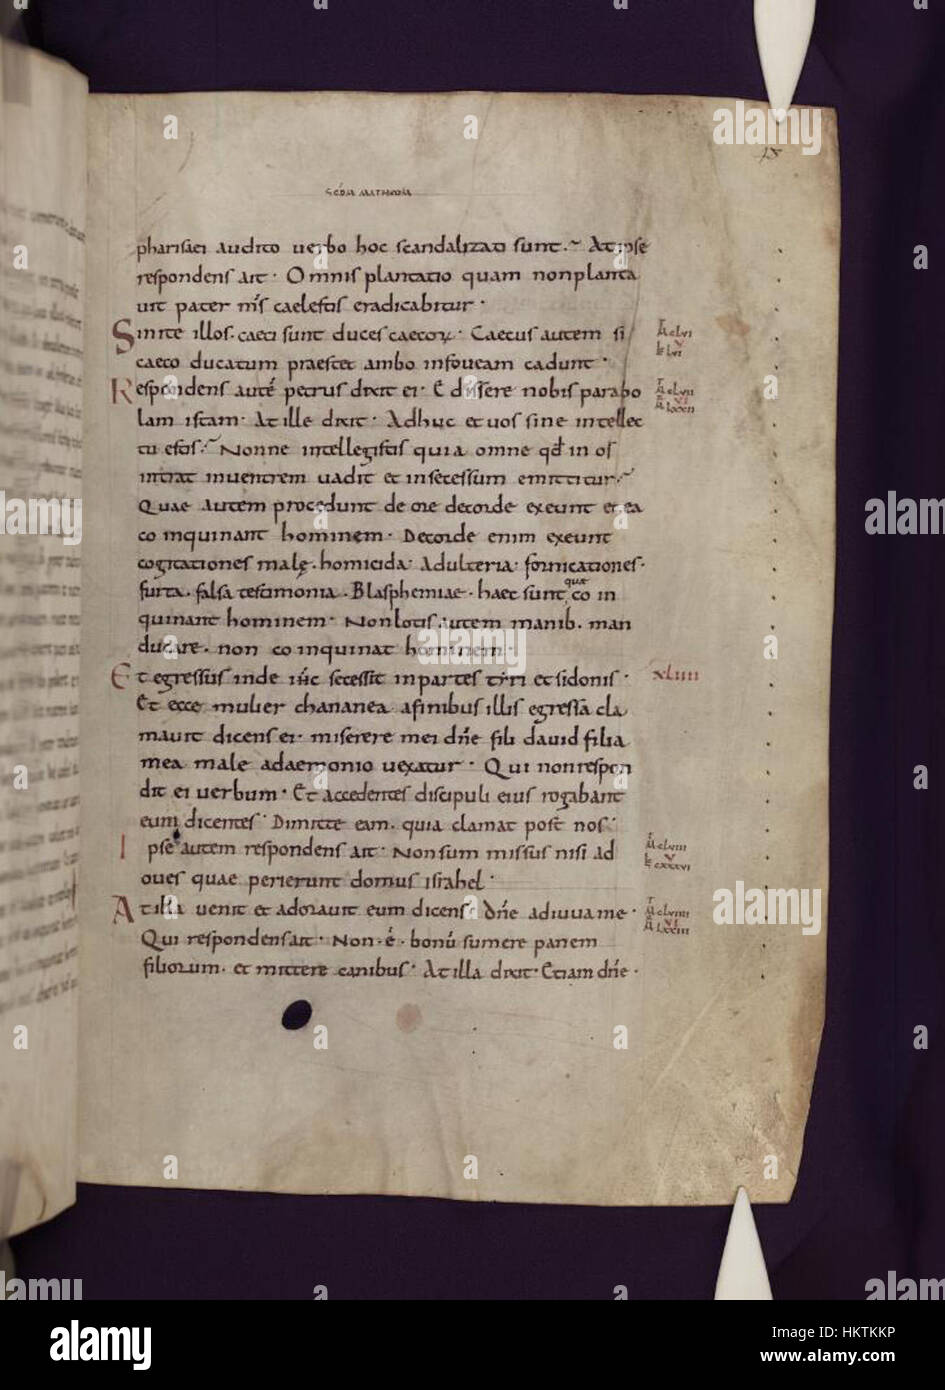 48
SCDM MATHEUM
pharisaei audito uerbo hoc scandalizati sunt. At ipse
respondens ait· Omnis plantatio quam nonplanta
uit pater m̅s caelestis eradicabitur·
Sinite illos· caeci sunt duces caecoꝝ· Caecus autem si
caeco ducatum praestet ambo infoueam cadunt·
Respondens aute̅ petrus dixit ei· Edissere nobis parabo
lam istam· At ille dixit· Adhuc et uos sine intellec
tu estis· Nonne intellegistis quia omne qd̅ in os
intrat inuentrem uadit et insecessum emittitur·
Quae autem procedunt de ore decorde exeunt et ea
coinquinant hominem· Decorde enim exeunt
cogitationes malę· homicida· Adulteria· fornicationes·
furta· falsa testimonia· Blasphemiae· haec sunt quae coin
quinant hominem· Nonlotis autem manib· man
ducare· non coinquinat hominem·
Et egressus inde ih̅c secessit inpartes tyri et sidonis·
xliiii
Et ecce mulier chananea afinibus illis egressa cla
mauit dicens ei· miserere mei dn̅e fili dauid filia
mea male adaemonio uexatur· Qui nonrespon
dit ei uerbum· Et accedentes discipuli eius rogabant
eum dicentes· Dimitte eam· quia clamat post nos·
Ipse autem respondens ait· Nonsum missus nisi ad
oues quae perierunt domus israhel·
At illa uenit et adorauit eum dicens· dn̅e adiuuame·
Qui respondensait· Non·e̅· bonu̅ sumere panem
filiorum· et mittere canibus· At illa dixit· Etiam dn̅e·
alamy
Image ID: HKTKKP
www.alamy.com